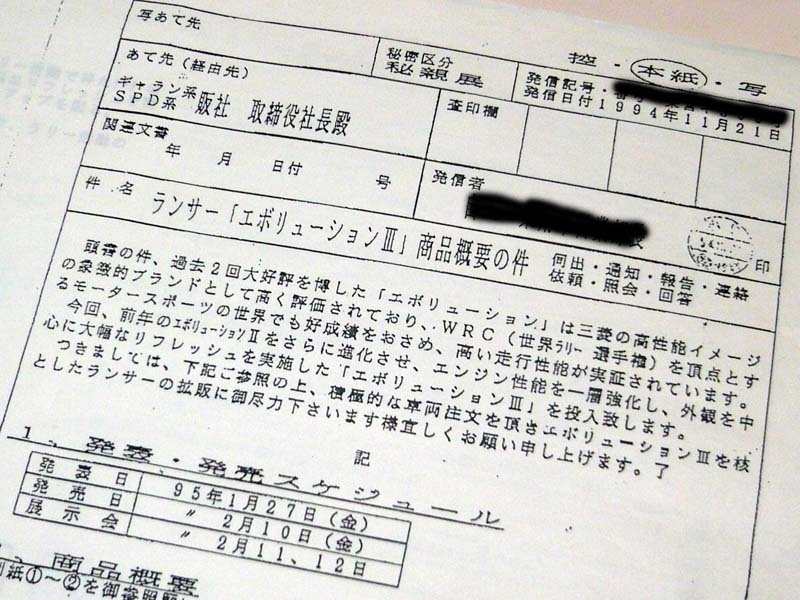 写あて先
控・本紙・写
あて先（経由先）
秘密区分
秘親展
発信記号・
発信日付 1994年11月21日
ギャラン系
SPD系 販社 取締役社長殿
査印欄
関連文書
年 月 日付 号
発信者
印
件名 ランサー「エボリューションⅢ」商品概要の件
伺出・通知・報告・連絡
依頼・照会・回答
頭書の件、過去2回大好評を博した「エボリューション」は三菱の高性能イメージ
の象徴的ブランドとして高く評価されており、WRC（世界ラリー選手権）を頂点とす
るモータースポーツの世界でも好成績をおさめ、高い走行性能が実証されています。
今回、前年のエボリューションⅡをさらに進化させ、エンジン性能を一層強化し、外観を中
心に大幅なリフレッシュを実施した「エボリューションⅢ」を投入致します。
つきましては、下記ご参照の上、積極的な車両注文を頂きエボリューションⅢを核
としたランサーの拡販に御尽力下さいます様宜しくお願い申し上げます。了
記
1、発表・発売スケジュール
発表日 95年1月27日（金）
発売日 〃 2月10日（金）
展示会 〃 2月11、12日
商品概要
別紙①〜②を御参照